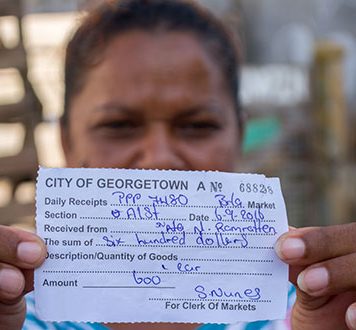 CITY OF GEORGETOWN A No 68828
Daily Receipts PPP 7480 Market
Section Date 6.9.2016
Received from N. Ramrattan
The sum of Six hundred dollars
Description/Quantity of Goods
1 car
Amount 600
S. Nunes
For Clerk of Markets